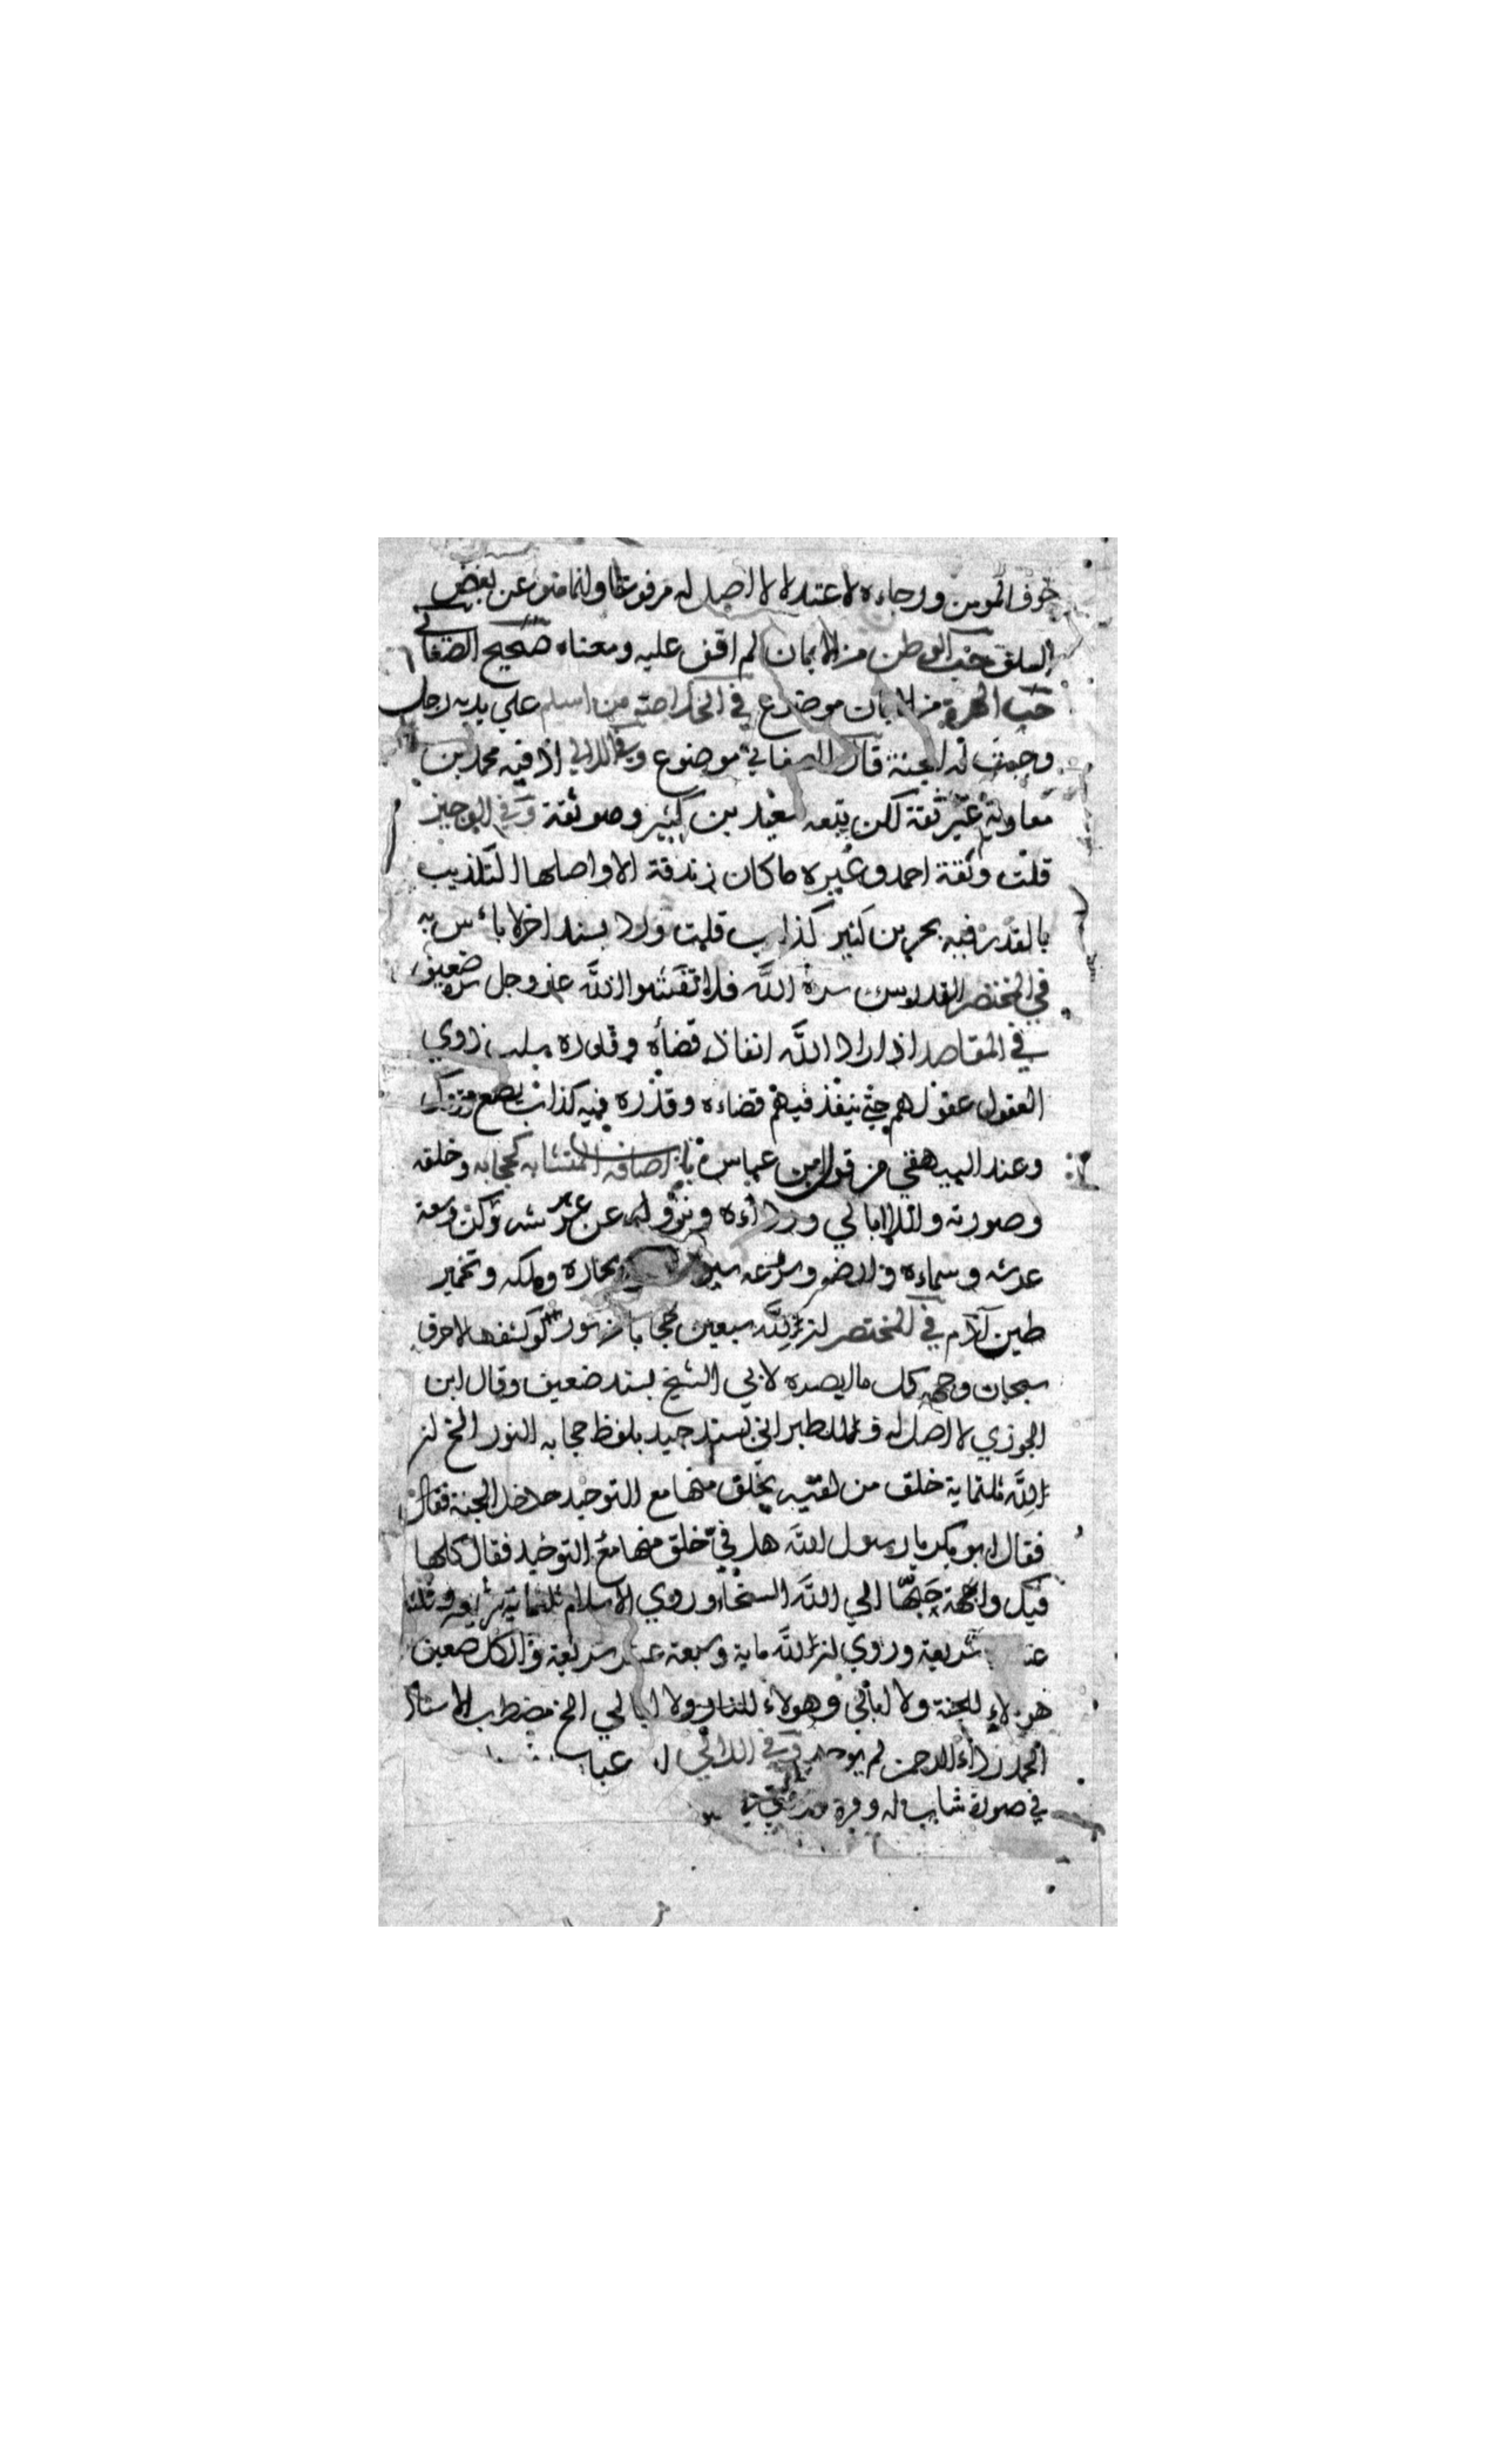 خوف المومن ورجاءه لاعتدلا لا اصل له مرفوعا وانما هو عن بعض
السلف حب الوطن من الايمان لم اقف عليه ومعناه صحيح الصغاني
حب الهرة من الايمان موضوع في الخلاصة من اسلم علي يديه رجل
وجبت له الجنة قال الصغاني موضوع وفي اللالي اذ فيه محمد بن
معاوية غير ثقة لكن يتبعه سعيد بن كثير وهو ثقة وفي الوجيز
قلت وثقة احمد وغيره ما كان زندقة الا واصلها التكذيب
بالقدر فيه بحر بن كنيز كذاب قلت ورد بسند اخر لا باس به
في المختصر القدر سر الله فلا تفشوا لله عز وجل سره ضعيف
في المقاصد اذا اراد الله انفاذ قضاه وقدره سلب ذوي
العقول عقولهم حتي ينفذ فيهم قضاءه وقدره فيه كذاب يضع متروك
وعند البيهقي من قول ابن عباس باب اضافه المتشابه كحجابه وخلقه
وصورته ولا ابالي ورداءه ونزوله عن عرشه وسعة
عرشه وسماءه وارضه بحاره وملكه وتخمير
طين آدم في المختصر ان لله سبعين حجابا من نور لو كشفها لاحرقت
سبحات وجهه كل ما بصره لابي الشيخ بسند ضعيف وقال ابن
الجوزي لا اصل له وللطبراني بسند جيد بلفظ حجابه النور الخ ان
لله ثلثماية خلق من لقيه بخلق منها مع التوحيد دخل الجنة فقال
فقال ابو بكر يا رسول الله هل في خلق منها مع التوحيد فقال كلها
فيك واحبها الي الله السخاء وروي الاسلام ثلثماية شريعة وثلثة
عشر شريعة وروي ان لله ماية وسبعة عشر شريعة والكل ضعيف
هولاء للجنة ولا ابالي وهولاء للنار ولا ابالي الخ مضطرب الاسناد
الحمد رداء الرحمن لم يوجد وفي اللالي
في صورة شاب له وفرة